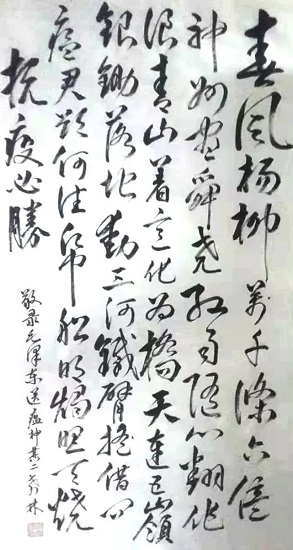 春风杨柳萬千條六億
神州尽舜尧红雨随心翻作
浪青山着意化为橋天連五嶺
银锄落地动三河鐵臂摇借问
瘟君欲何往纸船明烛照天燒
抗疫必勝
敬录毛泽东送瘟神其二 林